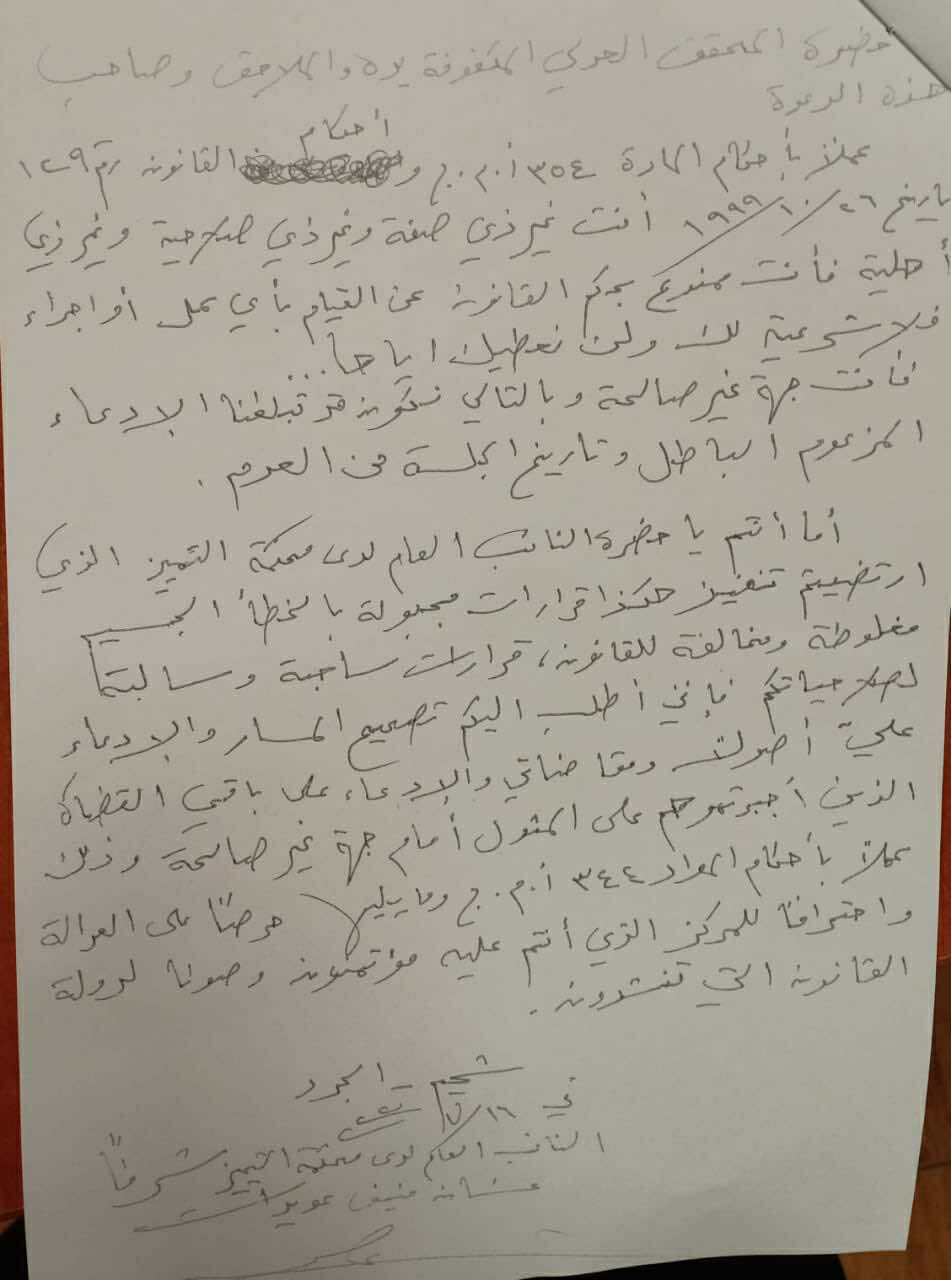 حضرة المحقق العدلي المكفوفة يده والملاحق وصاحب
هذه الدعوة
أحكام
عملاً بأحكام المادة ٣٥٤ أ.م.ج و القانون رقم ١٢٩
تاريخ ٢٦/١٠/١٩٩٩ أنت غير ذي صفة وغير ذي صلاحية وغير ذي
أهلية فأنت ممنوع بحكم القانون عن القيام بأي عمل أو اجراء
فلا شرعية لك ولن نعطيك اياها...
فأنت جهة غير صالحة وبالتالي نكون قد تبلغنا الادعاء
المزعوم الباطل وتاريخ الجلسة من العدم .
أما أنتم يا حضرة النائب العام لدى محكمة التمييز الذي
ارتضيتم تنفيذ هكذا قرارات مجبولة بالخطأ الجسيم
مغلوطة ومخالفة للقانون، قرارات ساحبة وسالبة
لصلاحياتكم فإنني أطلب اليكم تصحيح المسار والادعاء
عليّ أصولاً ومقاضاتي والادعاء على باقي القضاة
الذين أجبرتموهم على المثول أمام جهة غير صالحة وذلك
عملاً بأحكام المواد ٣٤٤ أ.م.ج وما يليها حرصاً على العدالة
واحتراماً للمركز الذي أنتم عليه مؤتمنون وصونا لدولة
القانون التي تنشدون .
شحيم - الجرد
في
النائب العام لدى محكمة التمييز شرفاً
غسان منيف عويدات